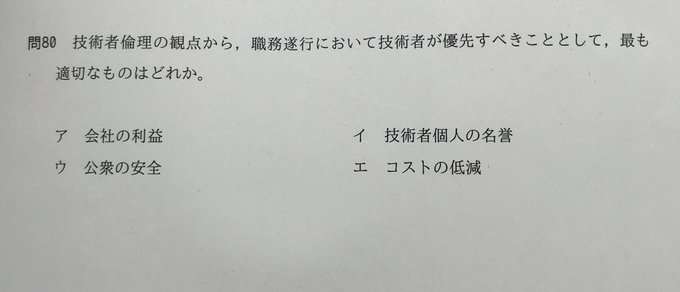 問80 技術者倫理の観点から，職務遂行において技術者が優先すべきこととして，最も
適切なものはどれか。
ア 会社の利益 イ 技術者個人の名誉
ウ 公衆の安全 エ コストの低減